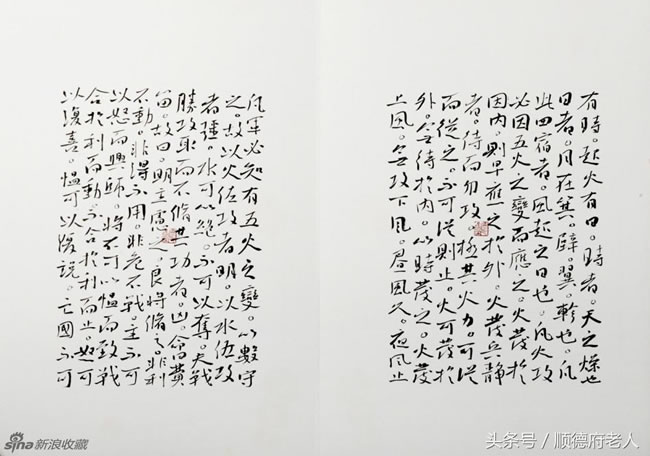 有時。起火有日。時者。天之燥也
日者。月在箕。壁。翼。軫也。凡
此四宿者。風起之日也。凡火攻
必因五火之變而應之。火發於
因内。則早應之於外。火發兵靜
者。待而勿攻。極其火力。可從
而從之。不可從則止。火可發於
外。無待於内。以時發之。火發
上風。無攻下風。晝風久。夜風止
凡軍必知有五火之變。以數守
之。故以火佐攻者明。以水佐攻
者強。水可以絕。不可以奪。夫戰
勝攻取而不脩其功者。凶。命費
留。故曰。明主慮之。良將脩之。非利
不動。非得不用。非危不戰。主不可
以怒而興師。將不可以慍而致戰
合於利而動。不合於利而止。怒可
以復喜。慍可以復說。亡國不可
sina新浪收藏
头条号／顺德府老人